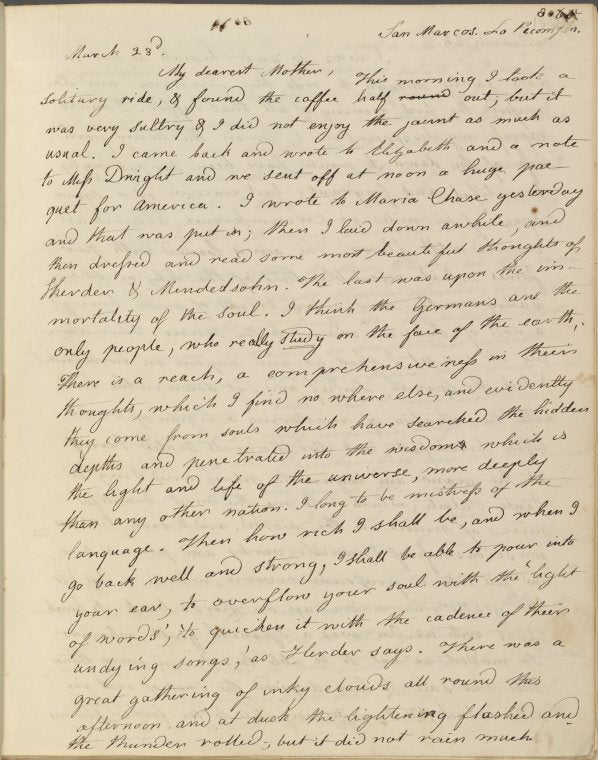 San Marcos. La Recompsa.
March 23d.
My dearest Mother, This morning I took a
solitary ride, & found the caffee half round out; but it
was very sultry & I did not enjoy the jaunt as much as
usual. I came back and wrote to Elizabeth and a note
to Miss Dwight and we sent off at noon a huge pac-
quet for America. I wrote to Maria Chase yesterday
and that was put in; then I laid down awhile, and
then dressed and read some most beautiful thoughts of
Herder & Mendelsohn. The last was upon the im-
mortality of the soul. I think the Germans are the
only people, who really study on the face of the earth.
There is a reach, a comprehensiveness in their
thoughts, which I find no where else, and evidently
they come from souls which have searched the hidden
depths and penetrated into the wisdom which is
the light and life of the universe, more deeply
than any other nation. I long to be mistress of the
language. Then how rich I shall be, and when I
go back well and strong, I shall be able to pour into
your ear, to overflow your soul with the 'light
of words', 'to quicken it with the cadence of their
undying songs,' as Herder says. There was a
great gathering of inky clouds all round this
afternoon and at dusk the lightening flashed and
the thunder rolled, but it did not rain much